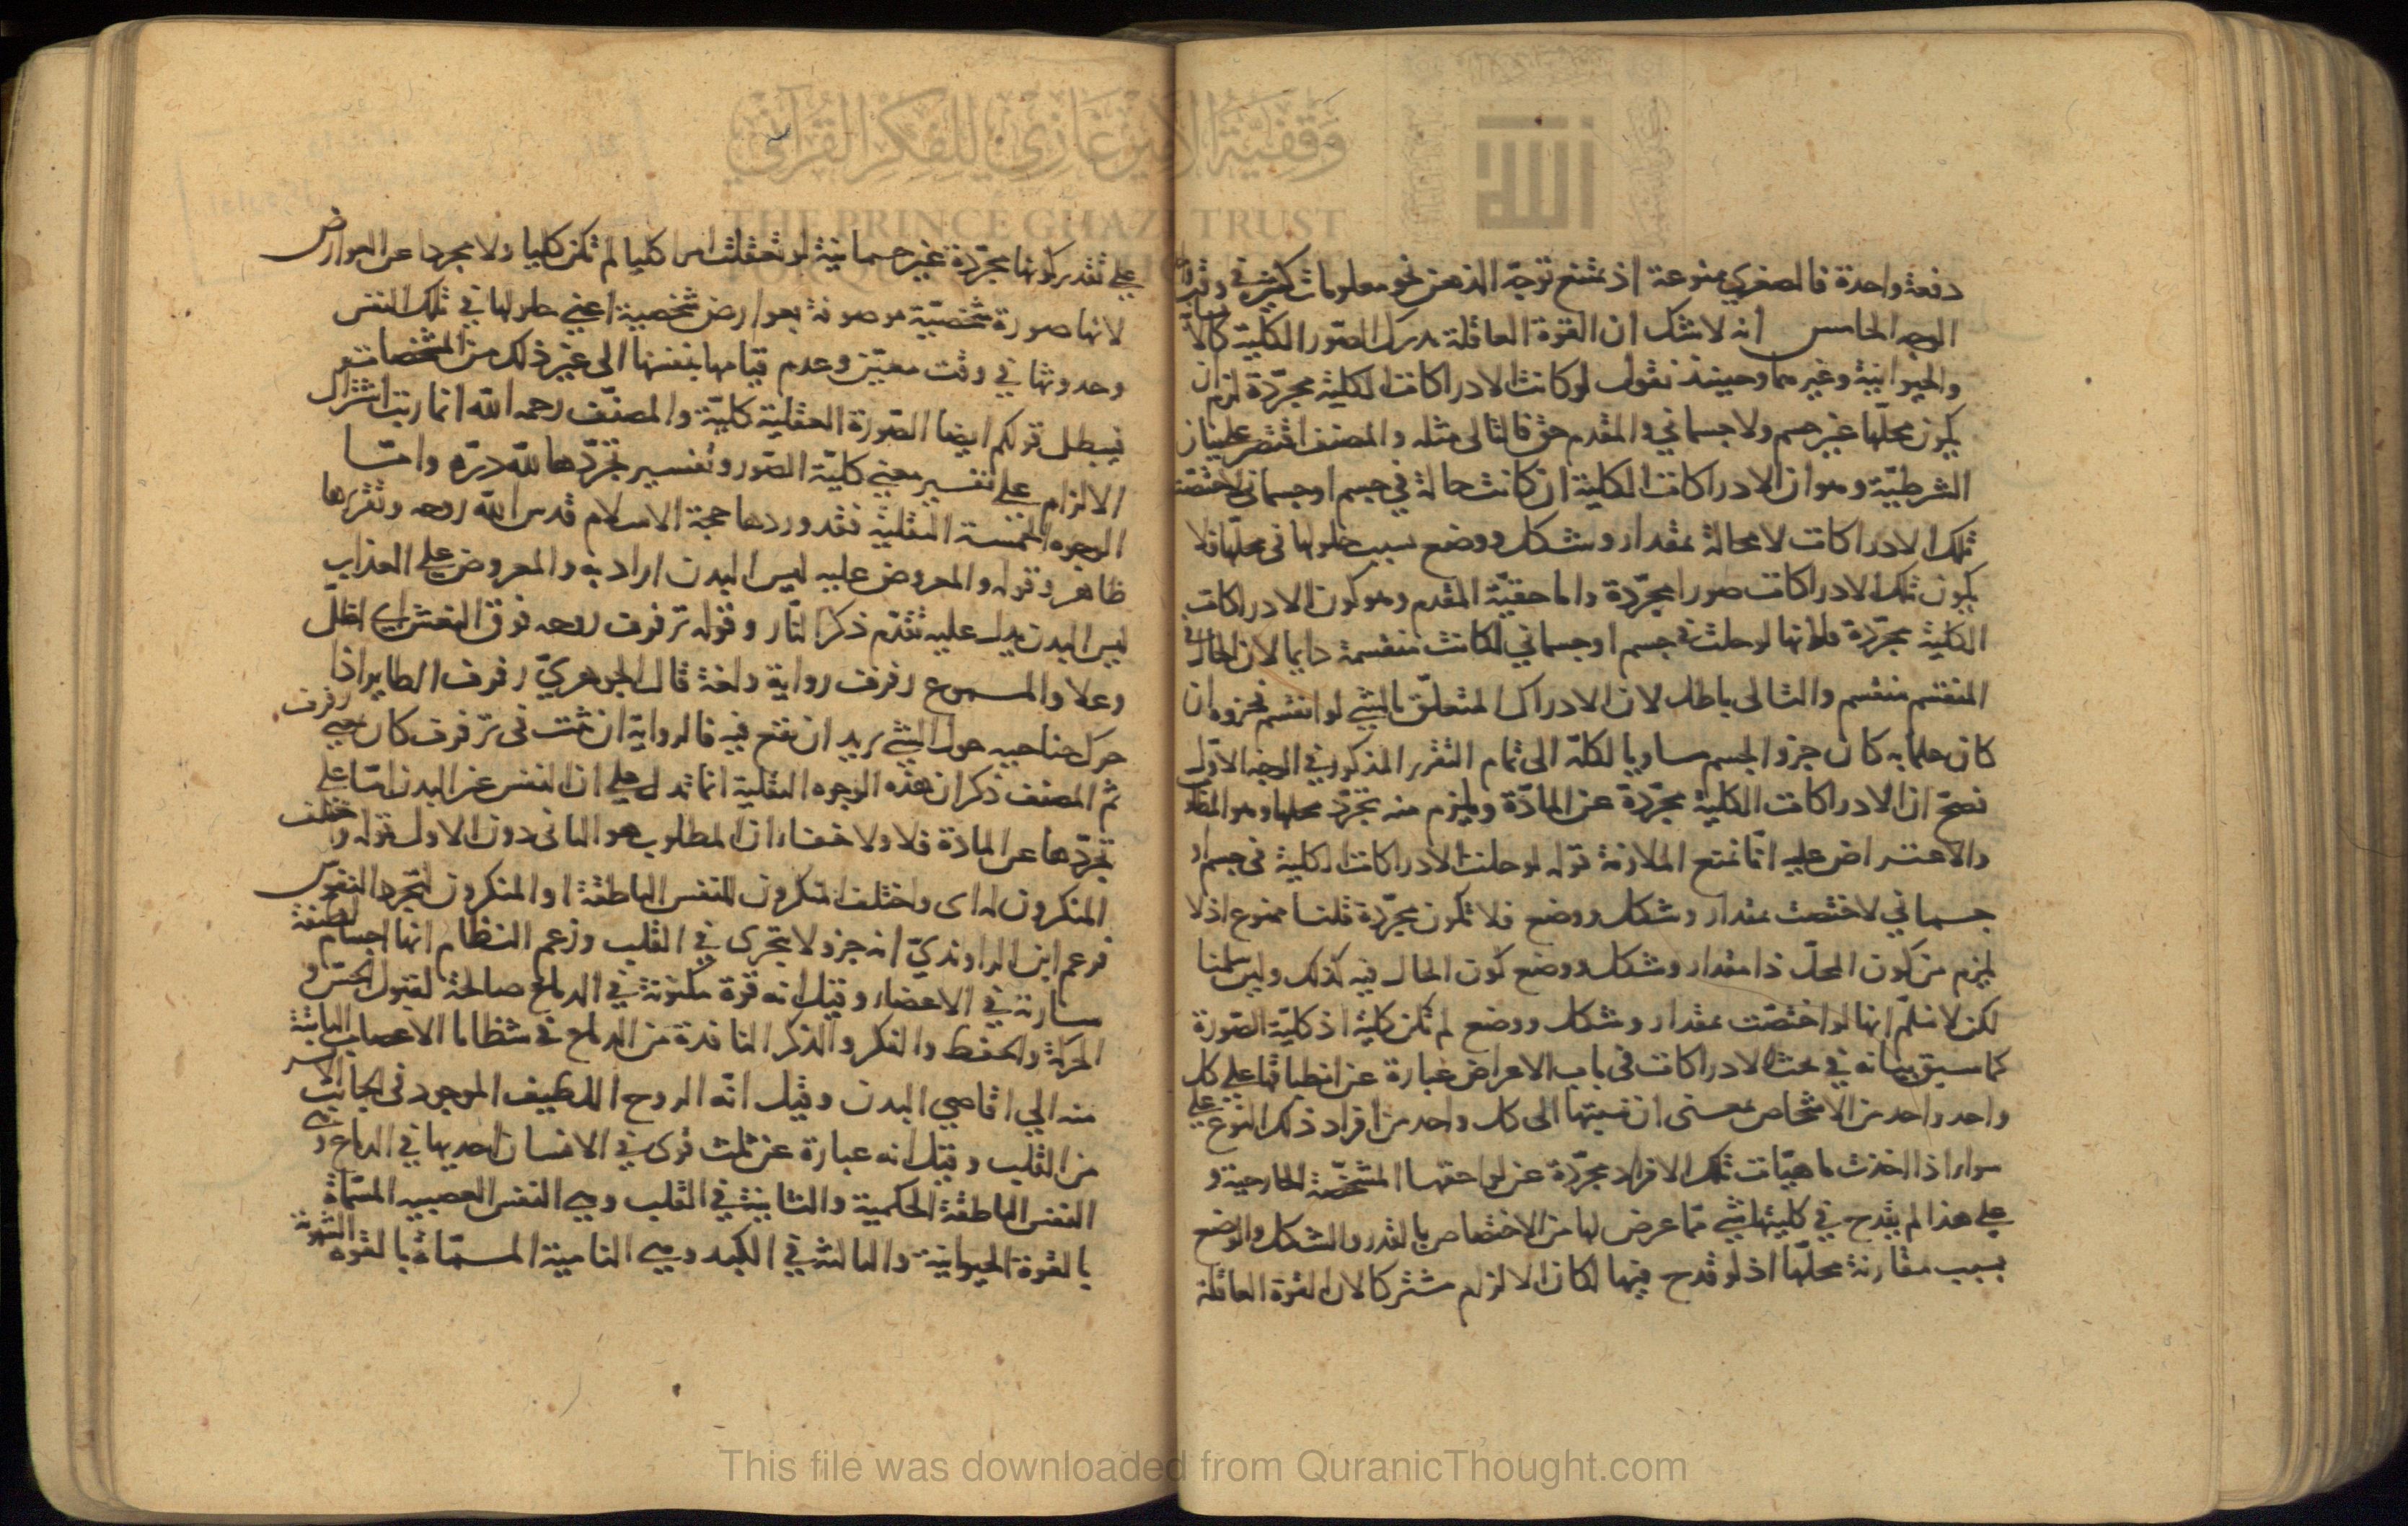 دفعة واحدة فالصغرى ممنوعة اذ يمتنع توجّه الذهن نحو معلومات كثيرة في وقت
الوجه الخامس انه لا شك ان القوة العاقلة تدرك الصّور الكلية كالا
والحيوانية وغيرهما وحينئذ نقول لو كانت الادراكات الكلية مجرّدة لزم ان
يكون محلّها غير جسم ولا جسماني والمقدم حق فالتالى مثله والمصنف اقتصر على بيان
الشرطيّة وهو ان الادراكات الكلية ان كانت حالة في جسم او جسماني لاختصّت
تلك الادراكات لا محالة بمقدار وشكل ووضع بسبب حلولها في محلّها فلا
يكون تلك الادراكات صورا مجرّدة واما حقيّة المقدم وهو كون الادراكات
الكلية مجرّدة فلانها لو حلت في جسم او جسماني لكانت منقسمة دايما لان الحال في
المنقسم منقسم والتالى باطل لان الادراك المتعلّق بالشي لو انقسم فجزوه ان
كان علما به كان جزو الجسم مساويا لكلّه الى تمام التقرير المذكور في الوجه الاوّل
فصحّ ان الادراكات الكلية مجرّدة عن المادّة ويلزم منه تجرّد محلها وهو المط
والاعتراض عليه انّا نمنع الملازمة قوله لو حلت الادراكات الكلية في جسم او
جسماني لاختصت بمقدار وشكل ووضع فلا تكون مجرّدة قلنا ممنوع اذ لا
يلزم من كون المحلّ ذا مقدار وشكل ووضع كون الحال فيه كذلك ولين سلمنا
لكن لا نسلّم انها لو اختصّت بمقدار وشكل ووضع لم تكن كلية اذ كليّة الصّورة
كما سبق بيانه في بحث الادراكات في باب الاعراض عبارة عن انطباقها على كل
واحد واحد من الاشخاص بمعنى ان نسبتها الى كل واحد من افراد ذلك النوع على
سواء اذا اخذت ماهيّات تلك الافراد مجرّدة عن لواحقها المشخّصة الخارجية و
على هذا لم يقدح في كليتها شي مما عرض لها من الاختصاص بالقدر والشكل والوضع
بسبب مقارنة محلّها اذ لو قدح فيها لكان الالزام مشتركا لان القوة العاقلة
على تقدير كونها مجرّدة غير جسمانية لو تعقلت امرا كليا لم تكن كليا ولا مجردا عن العوارض
لانها صورة شخصيّة موصوفة بعوارض شخصية اعني حلولها في تلك النفس
وحدوثها في وقت معيّن وعدم قيامها بنفسها الى غير ذلك من المشخصات
فيبطل قولكم ايضا الصّورة العقلية كليّة والمصنّف رحمه الله انما رتب اشتراك
الالزام على تفسير معنى كليّة الصّور وتفسير تجرّدها لله درّه وامّا
الوجوه الخمسة النقلية فقد وردها حجة الاسلام قدس الله روحه وتقريرها
ظاهر وقوله والمعروض عليه ليس البدن اراد به والمعروض على العذاب
ليس البدن يدل عليه تقدّم ذكر النّار وقوله ترفرف روحه فوق النعش اي اظلّ
وعلا والمسموع رفرفت رواية ولغة قال الجوهريّ رفرف الطاير اذا
حرك جناحيه حول الشي يريد ان يقع فيه فالرواية ان ثبتت في ترفرف كان بمعنى رفرف
ثم المصنف ذكر ان هذه الوجوه النقلية انما تدل على ان النفس غير البدن امّا على
تجرّدها عن المادة فلا ولا خفاء ان المطلوب هو الثانى دون الاول قوله واختلف
المنكرون له اى واختلف المنكرون للنفس الناطقة او المنكرون لتجرد النفوس
فزعم ابن الراونديّ انه جزو لا يتجزى في القلب وزعم النظام انها اجسام لطيفة
سارية في الاعضاء وقيل انه قوة مكنونة في الدماغ صالحة لقبول الحسّ و
الحركة والحفظ والفكر والذكر النافذة من الدماغ في شظايا الاعصاب النابتة
منه الى اقاصي البدن وقيل انّه الروح اللطيف الموجود في الجانب الايسر
من القلب وقيل انه عبارة عن ثلث قوى في الانسان احديها في الدماغ وهي
النفس الناطقة الحكمية والثانية في القلب وهي النفس الغضبيه المسمّاة
بالقوة الحيوانية والثالثة في الكبد وهي النامية المسمّاة بالقوة الشهوية
وقفية الأمير غازي للفكر القرآني
THE PRINCE GHAZI TRUST
الله
This file was downloaded from QuranicThought.com